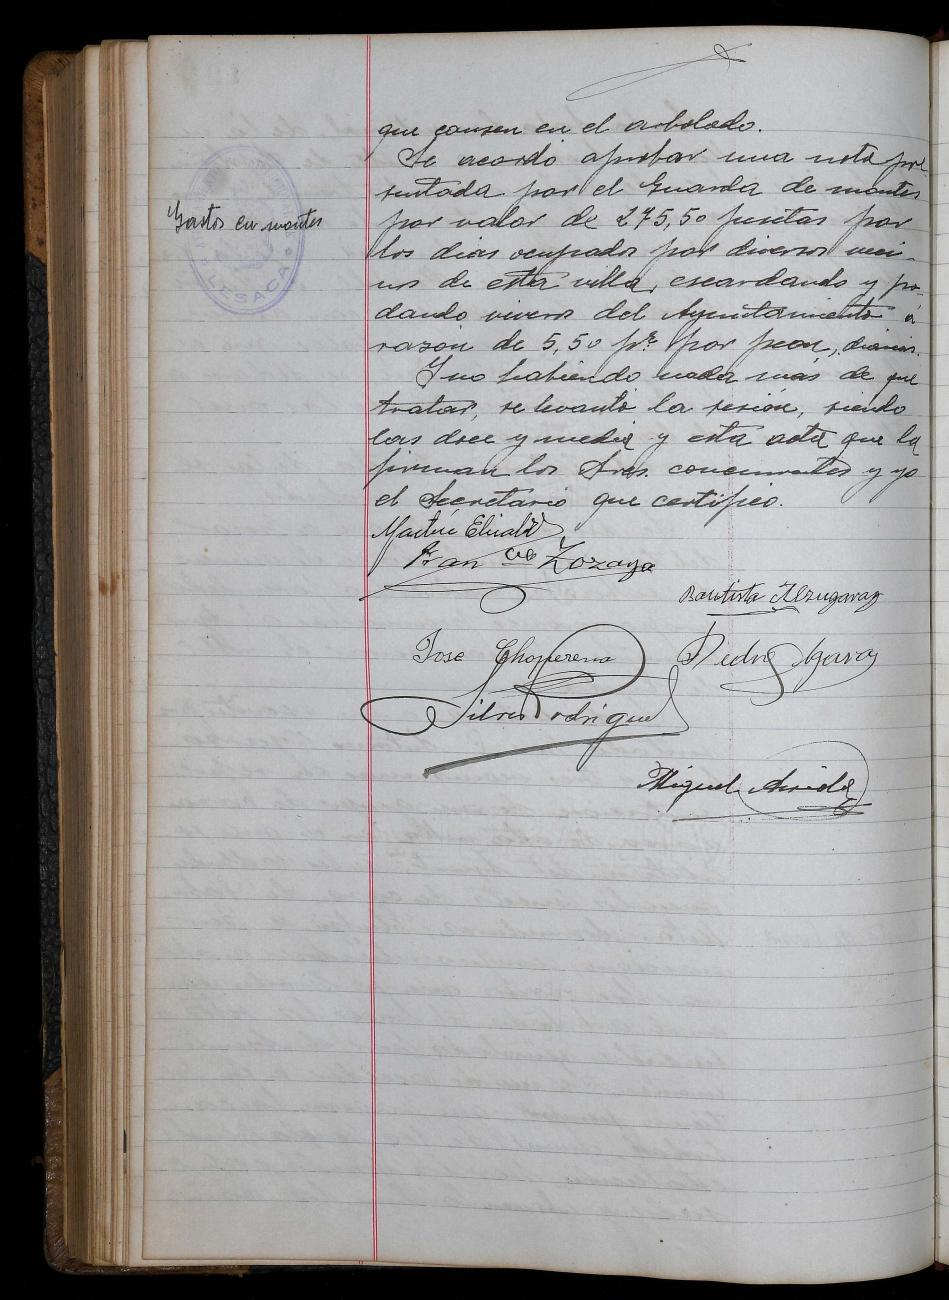 que causen en el arbolado.
Se acordó aprobar una nota pre
sentada por el Guarda de montes
Gastos en montes
por valor de 275,50 pesetas por
los dias ocupados por diversos veci-
nos de esta villa, escardando y po-
dando viveros del Ayuntamiento á
razon de 5,50 pts por peon, diarias.
Y no habiendo nada mas de que
tratar, se levantó la sesion, siendo
las doce y media y esta acta que la
firman los Sres. concurrentes y yo
el Secretario que certifico.
Martin Elizalde
Francco Zozaya
Bautista Alzugaray
Jose Choperena
Pedro
Silves Rodriguez
Miguel
LESACA